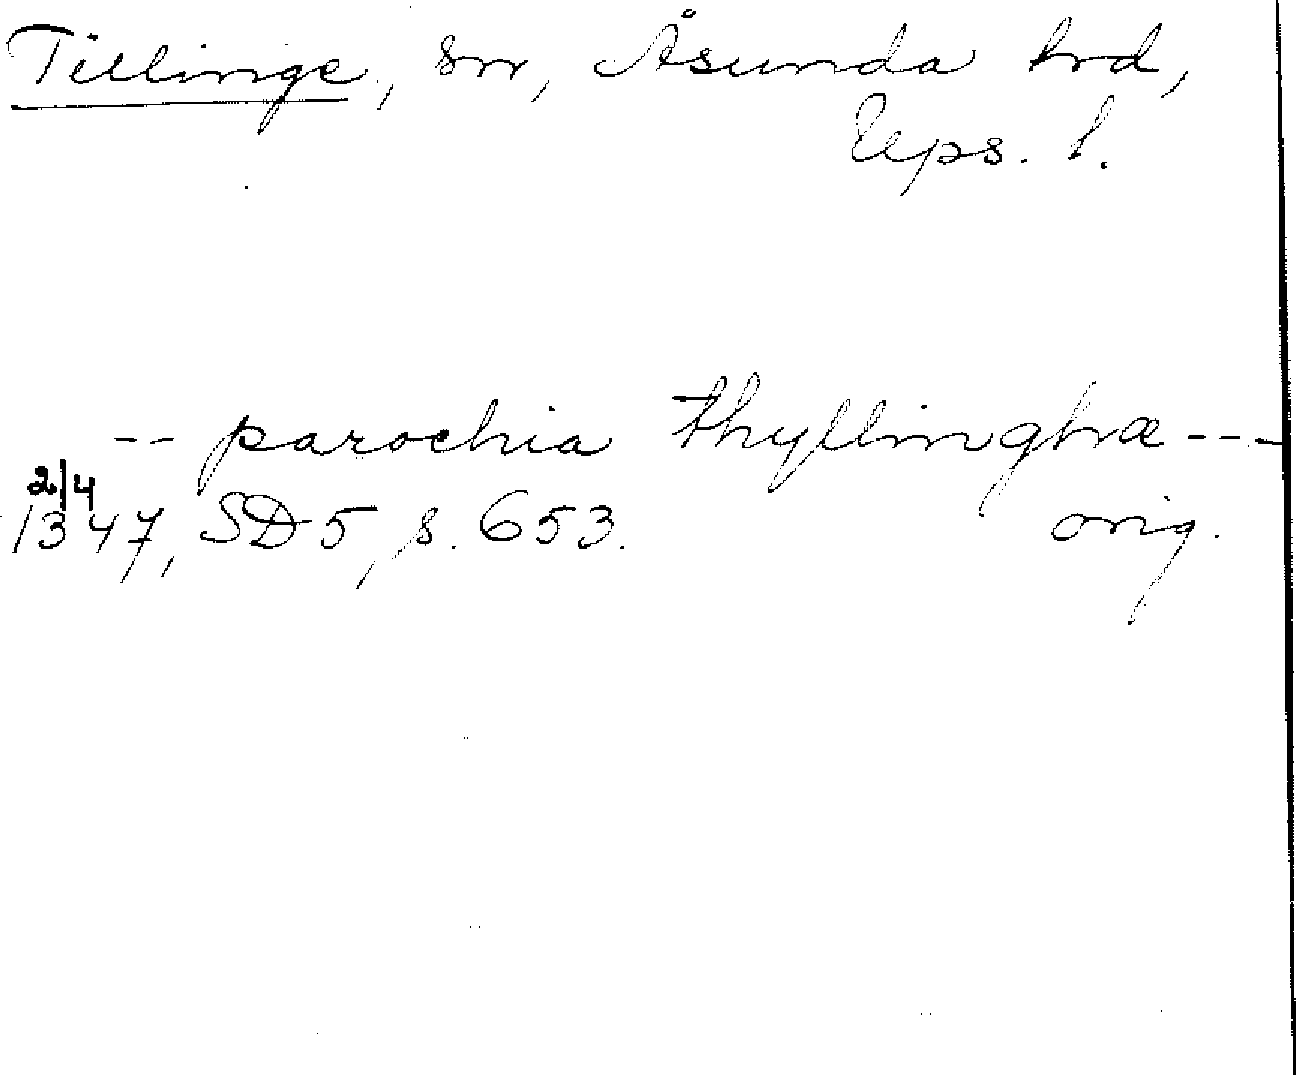 Tillinge, sn, Åsunda hrd,
Ups. l.
-- parochia thyllinghæ ---
2/4
1347, SD 5, s. 653. orig.